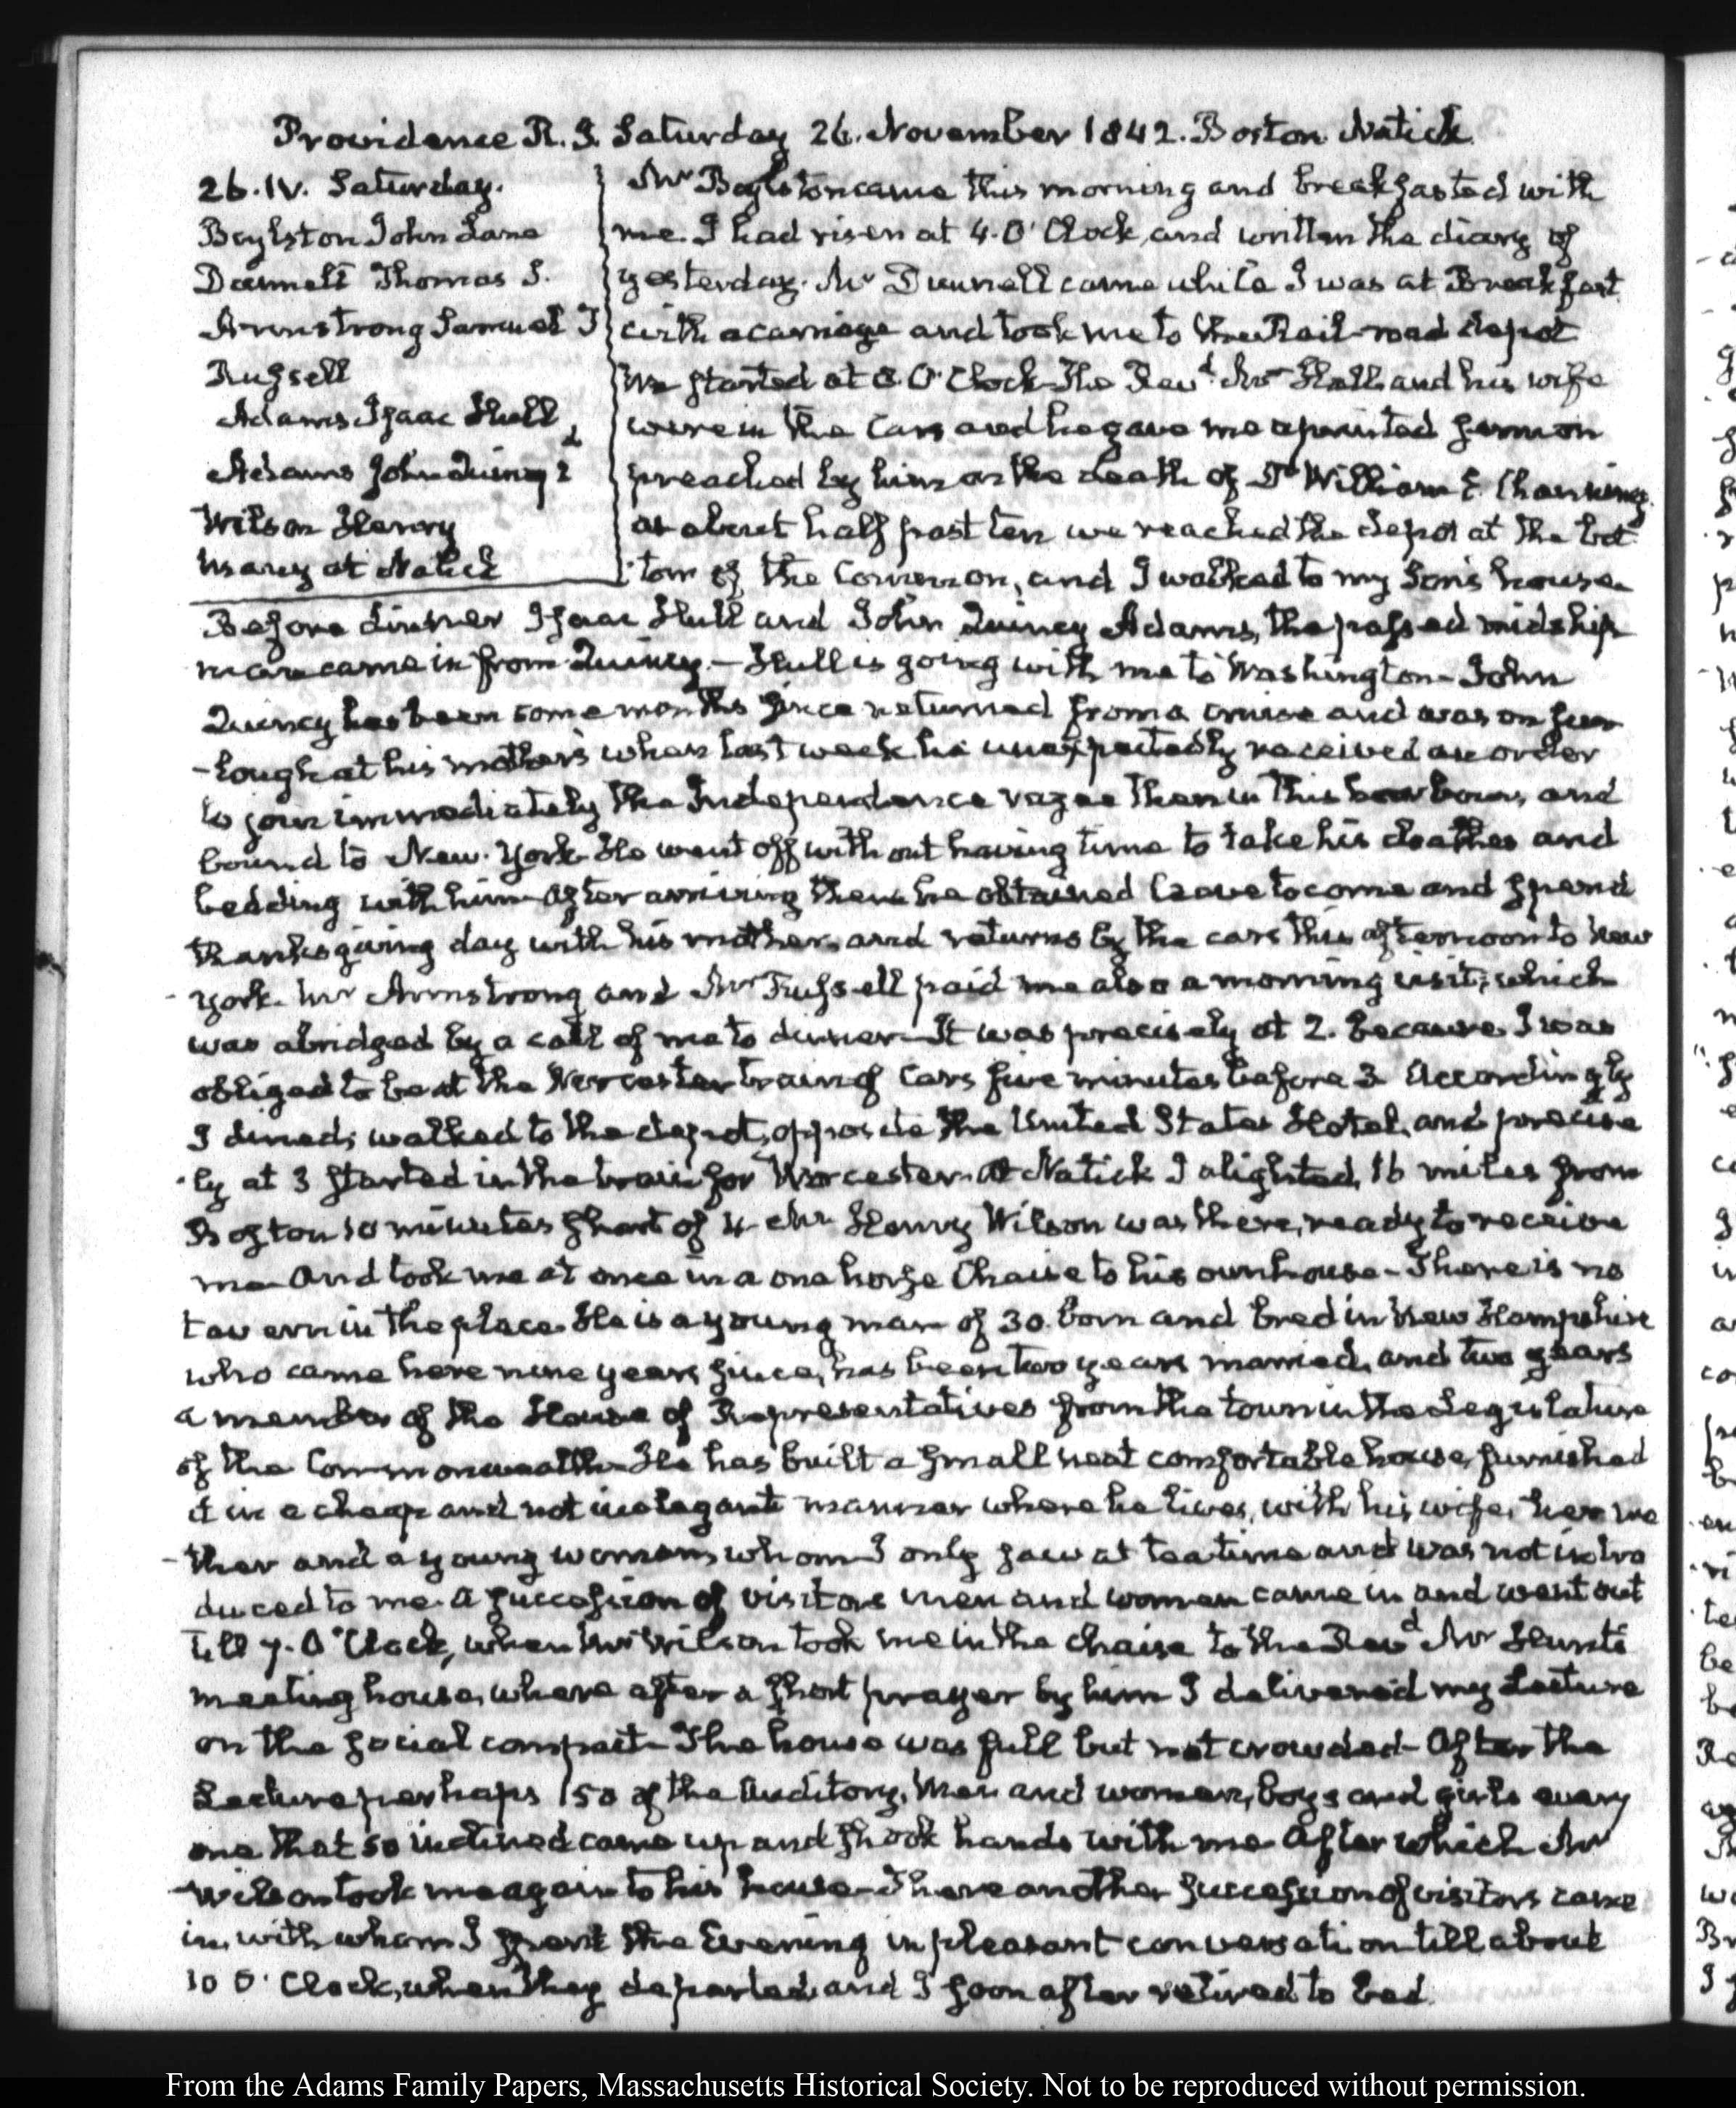 Providence R.I. Saturday 26. November 1842. Boston Natick
26. IV. Saturday.
Boylston John Lane
Dunnell Thomas L.
Armstrong Samuel T
Russell
Adams Isaac Hull
Adams John Quincy 2d
Wilson Henry
Many at Natick
Mr Boylston came this morning and breakfasted with
me. I had risen at 4. O'Clock, and written the diary of
yesterday. Mr Dunnell came while I was at Breakfast
with a carriage and took me to the Rail-road depot
We started at 8 O'Clock The Revd. Mr Hall and his wife
were in the Cars and he gave me a printed sermon
preached by him on the death of Dr William E. Channing.
at about half past ten we reached the depot at the bot
tom of the Common, and I walked to my Son's house.
Before dinner Isaac Hull and John Quincy Adams, the passed midship
man came in from Quincy.— Hull is going with me to Washington– John
Quincy has been some months since returned from a cruise and was on fur
-lough at his mother's when last week he unexpectedly received an order
to join immediately the Independence razee then in this harbour, and
bound to New-York– He went off without having time to take his cloathes and
bedding with him– After arriving there he obtained leave to come and spend
thanksgiving day with his mother, and returns by the cars this afternoon to New
-York. Mr Armstrong and Mr Russell paid me also a morning visit, which
was abridged by a call of me to dinner– It was precisely at 2. because I was
obliged to be at the Worcester train of Cars five minutes before 3 Accordingly
I dined, walked to the depot, opposite the United States Hotel, and precise
-ly at 3 started in the train for Worcester. At Natick I alighted, 16 miles from
Boston 10 minutes short of 4– Mr Henry Wilson was there, ready to receive
me– And took me at once in a one horse Chaise to his own house– There is no
tavern in the place. He is a young man of 30. born and bred in New Hampshire
who came here nine years since, has been two years married, and two years
a member of the House of Representatives from the town in the Legislature
of the Commonwealth– He has built a small neat comfortable house, furnished
it in a cheap and not inelegant manner where he lives, with his wife, her mo
-ther and a young woman, whom I only saw at tea time and was not intro
duced to me. A succession of visitors men and women came in and went out
till 7. O'Clock, when Mr Wilson took me in the chaise to the Revd Mr Hunt's
meeting house, where after a short prayer by him I delivered my Lecture
on the social compact– The house was full but not crowded– After the
Lecture perhaps 150 of the Auditory, Men and women, boys and girls every
one that so inclined came up and shook hands with me– After which Mr
Wilson took me again to his house– There another succession of visitors came
in, with whom I spent the Evening in pleasant conversation till about
10 O'Clock, when they departed, and I soon after retired to bed.
From the Adams Family Papers, Massachusetts Historical Society. Not to be reproduced without permission.